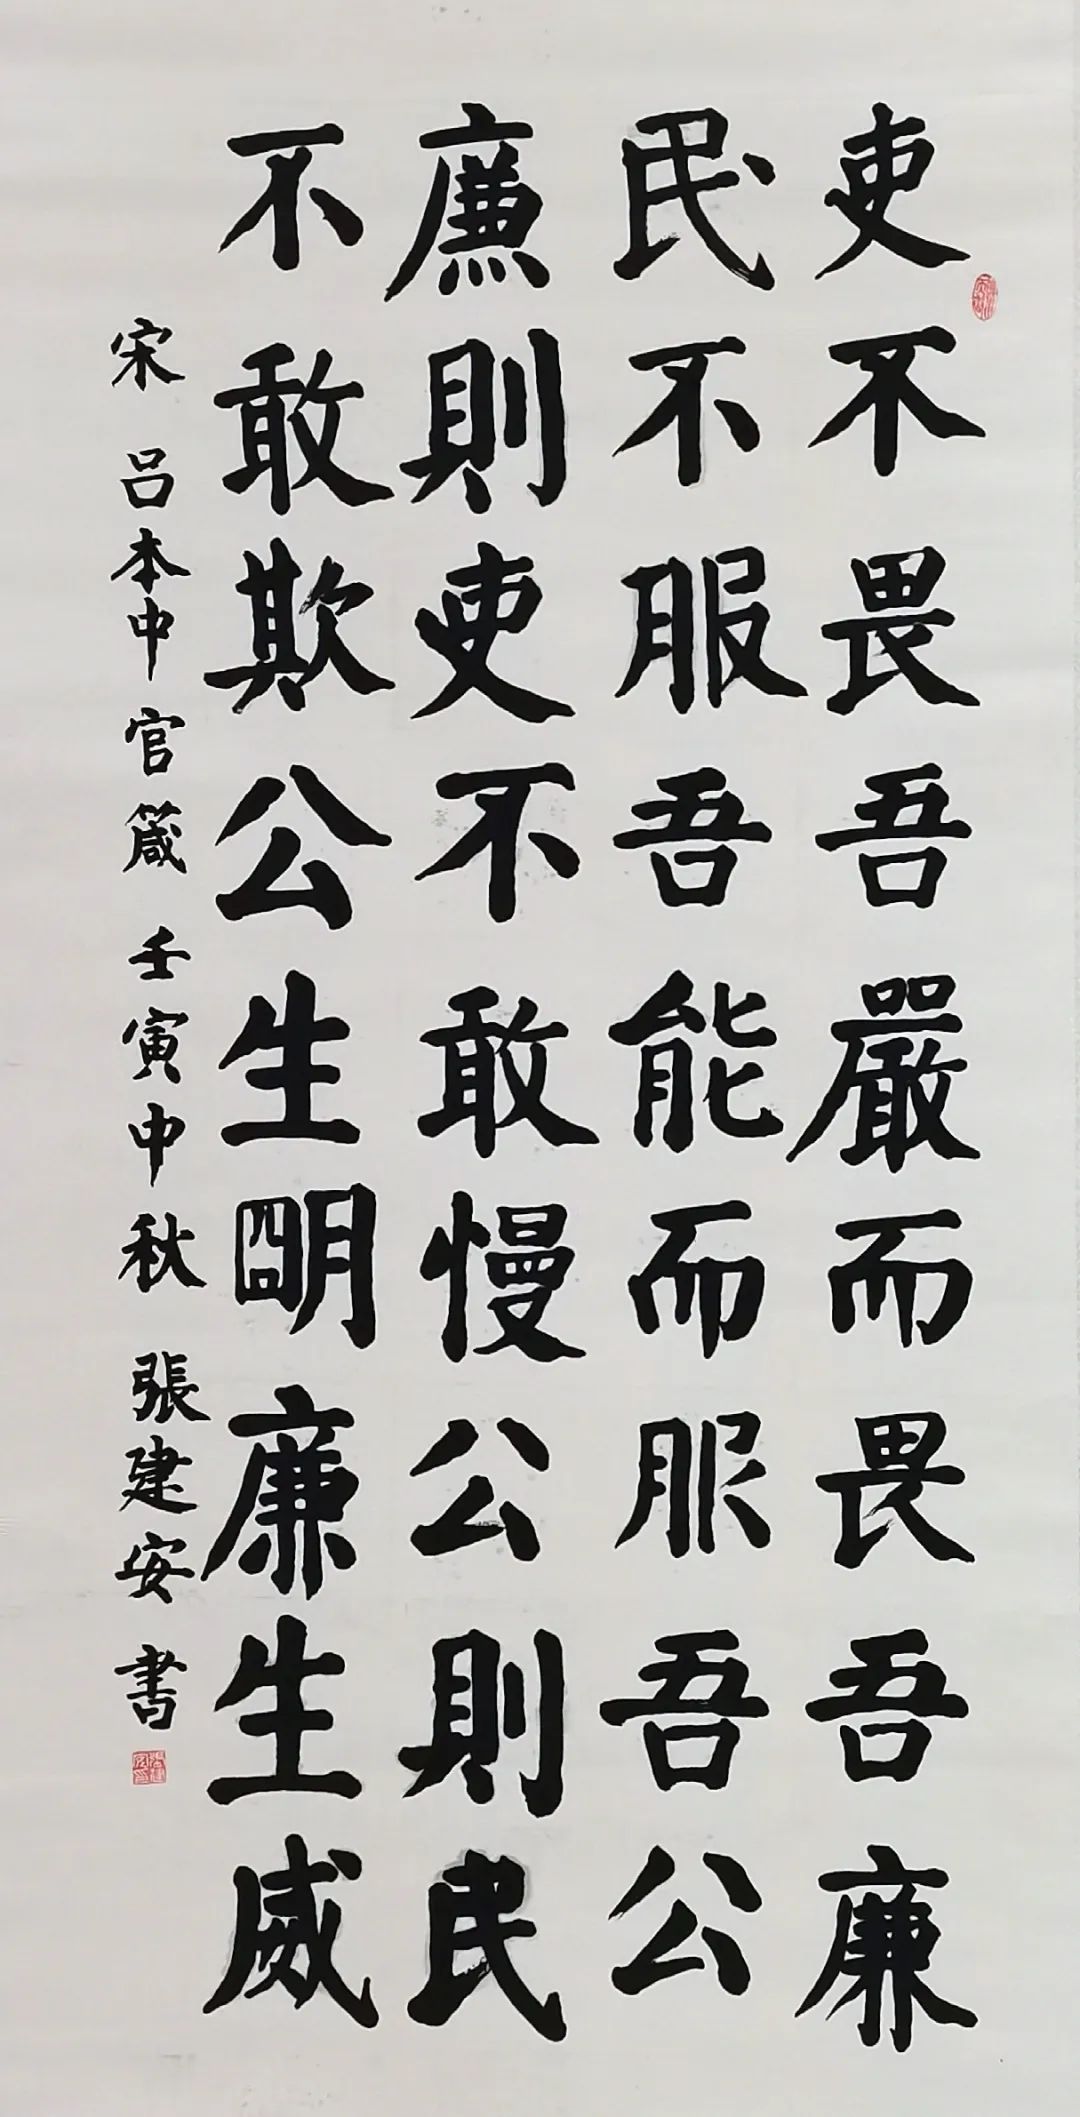 吏不畏吾嚴而畏吾廉
民不服吾能而服吾公
廉則吏不敢慢公則民
不敢欺公生明廉生威
宋 呂本中 官箴 壬寅中秋 張建安 書